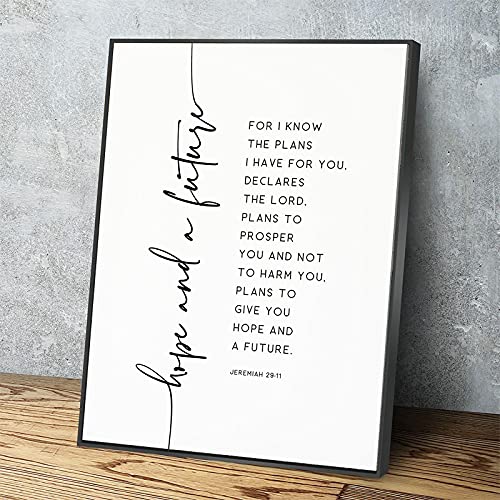 hope and a future
FOR I KNOW
THE PLANS
I HAVE FOR YOU,
DECLARES
THE LORD,
PLANS TO
PROSPER
YOU AND NOT
TO HARM YOU,
PLANS TO
GIVE YOU
HOPE AND
A FUTURE.
JEREMIAH 29:11